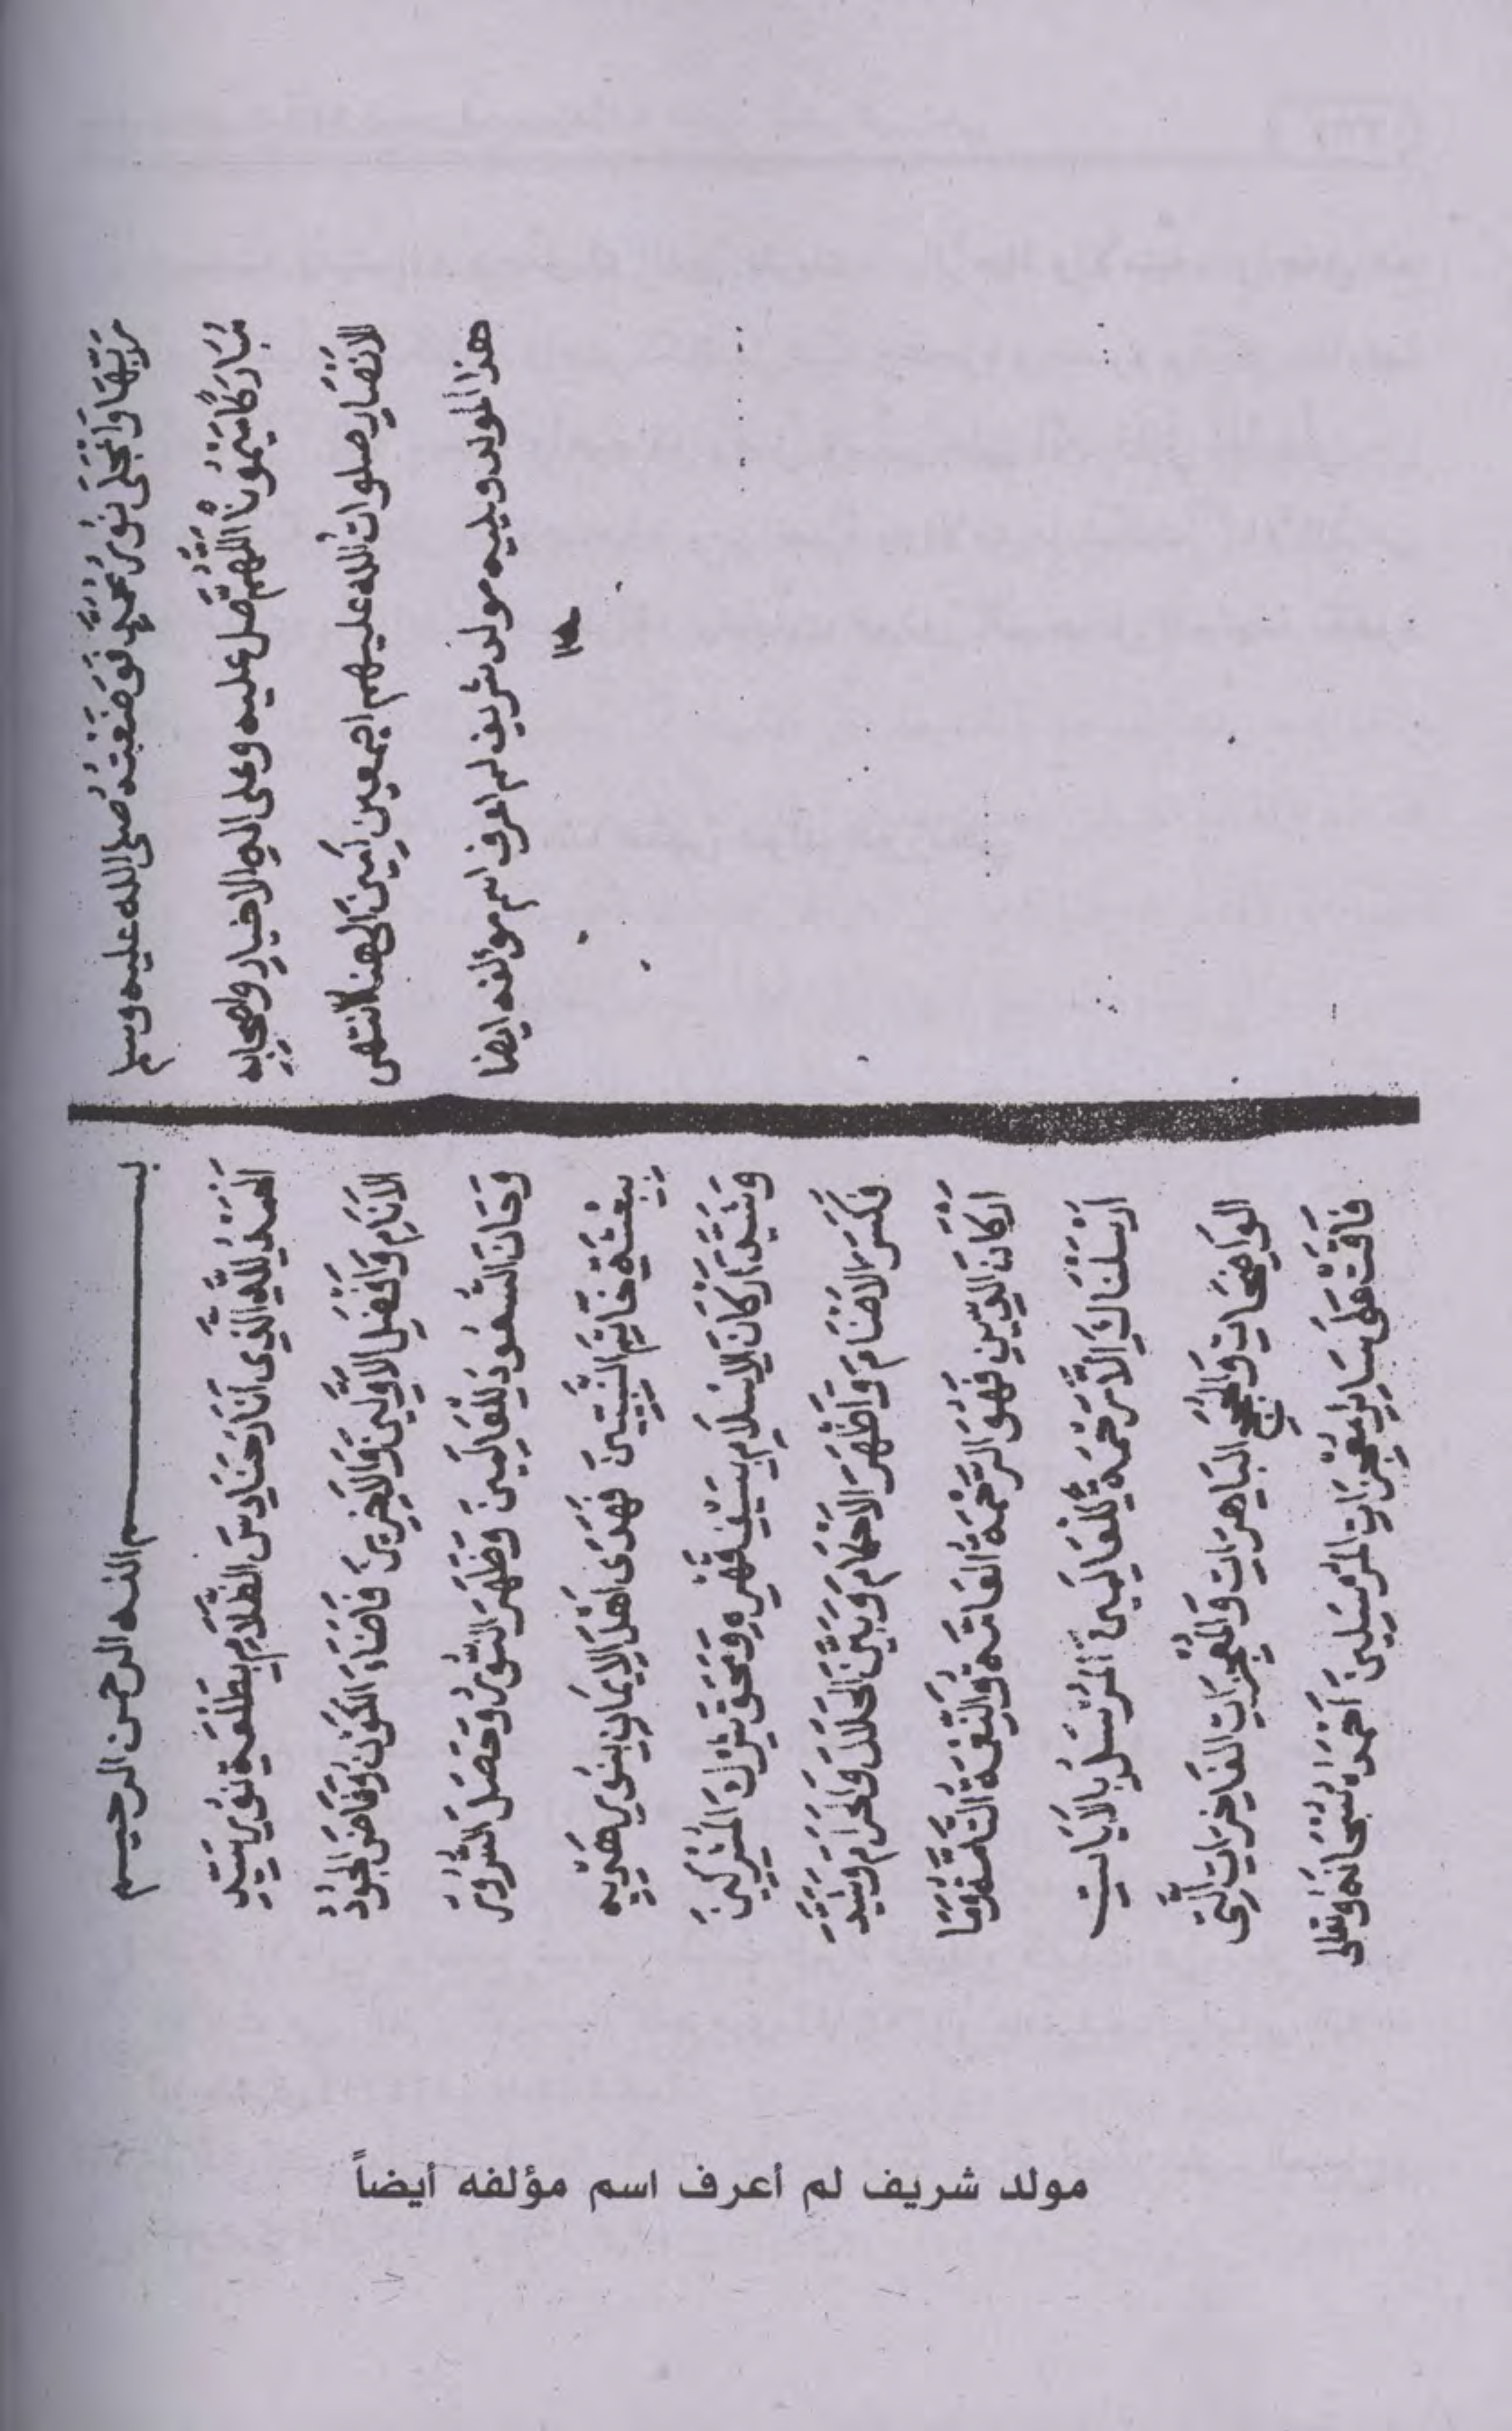 ربها وانجلى نور محمد فوضعته صلى الله عليه وسلم
مباركا ميمونا اللهم صل عليه وعلى اله الاخيار واصحابه
الانصار صلوات الله عليهم اجمعين امين الى هنا انتهى
هذا المولد ويليه مولد شريف لم اعرف اسم مؤلفه ايضا
بسم الله الرحمن الرحيم
الحمد لله الذى انار حنادس الظلام بطلعة نور سيد
الانام وافضل الاولين والاخرين فاضاء الكون وفاض الجود
وحان السعود للعالمين وظهر النور وحصل السرور
ببعثة خاتم النبيين فهدى اهل الايمان بنور هديه
وشيد اركان الاسلام بسيف قهره ومحق شرك المشركين
فكسر الاصنام واظهر الاحكام وبين الحلال والحرام وشيد
اركان الدين فهو الرحمة العامة والنعمة التامة وما
ارسلناك الا رحمة للعالمين المرسل بالايات
الواضحات والحجج الباهرات والمعجزات الفاخرات التى
فاقت على ساير معجزات المرسلين احمده سبحانه وتعالى
مولد شريف لم أعرف اسم مؤلفه أيضاً